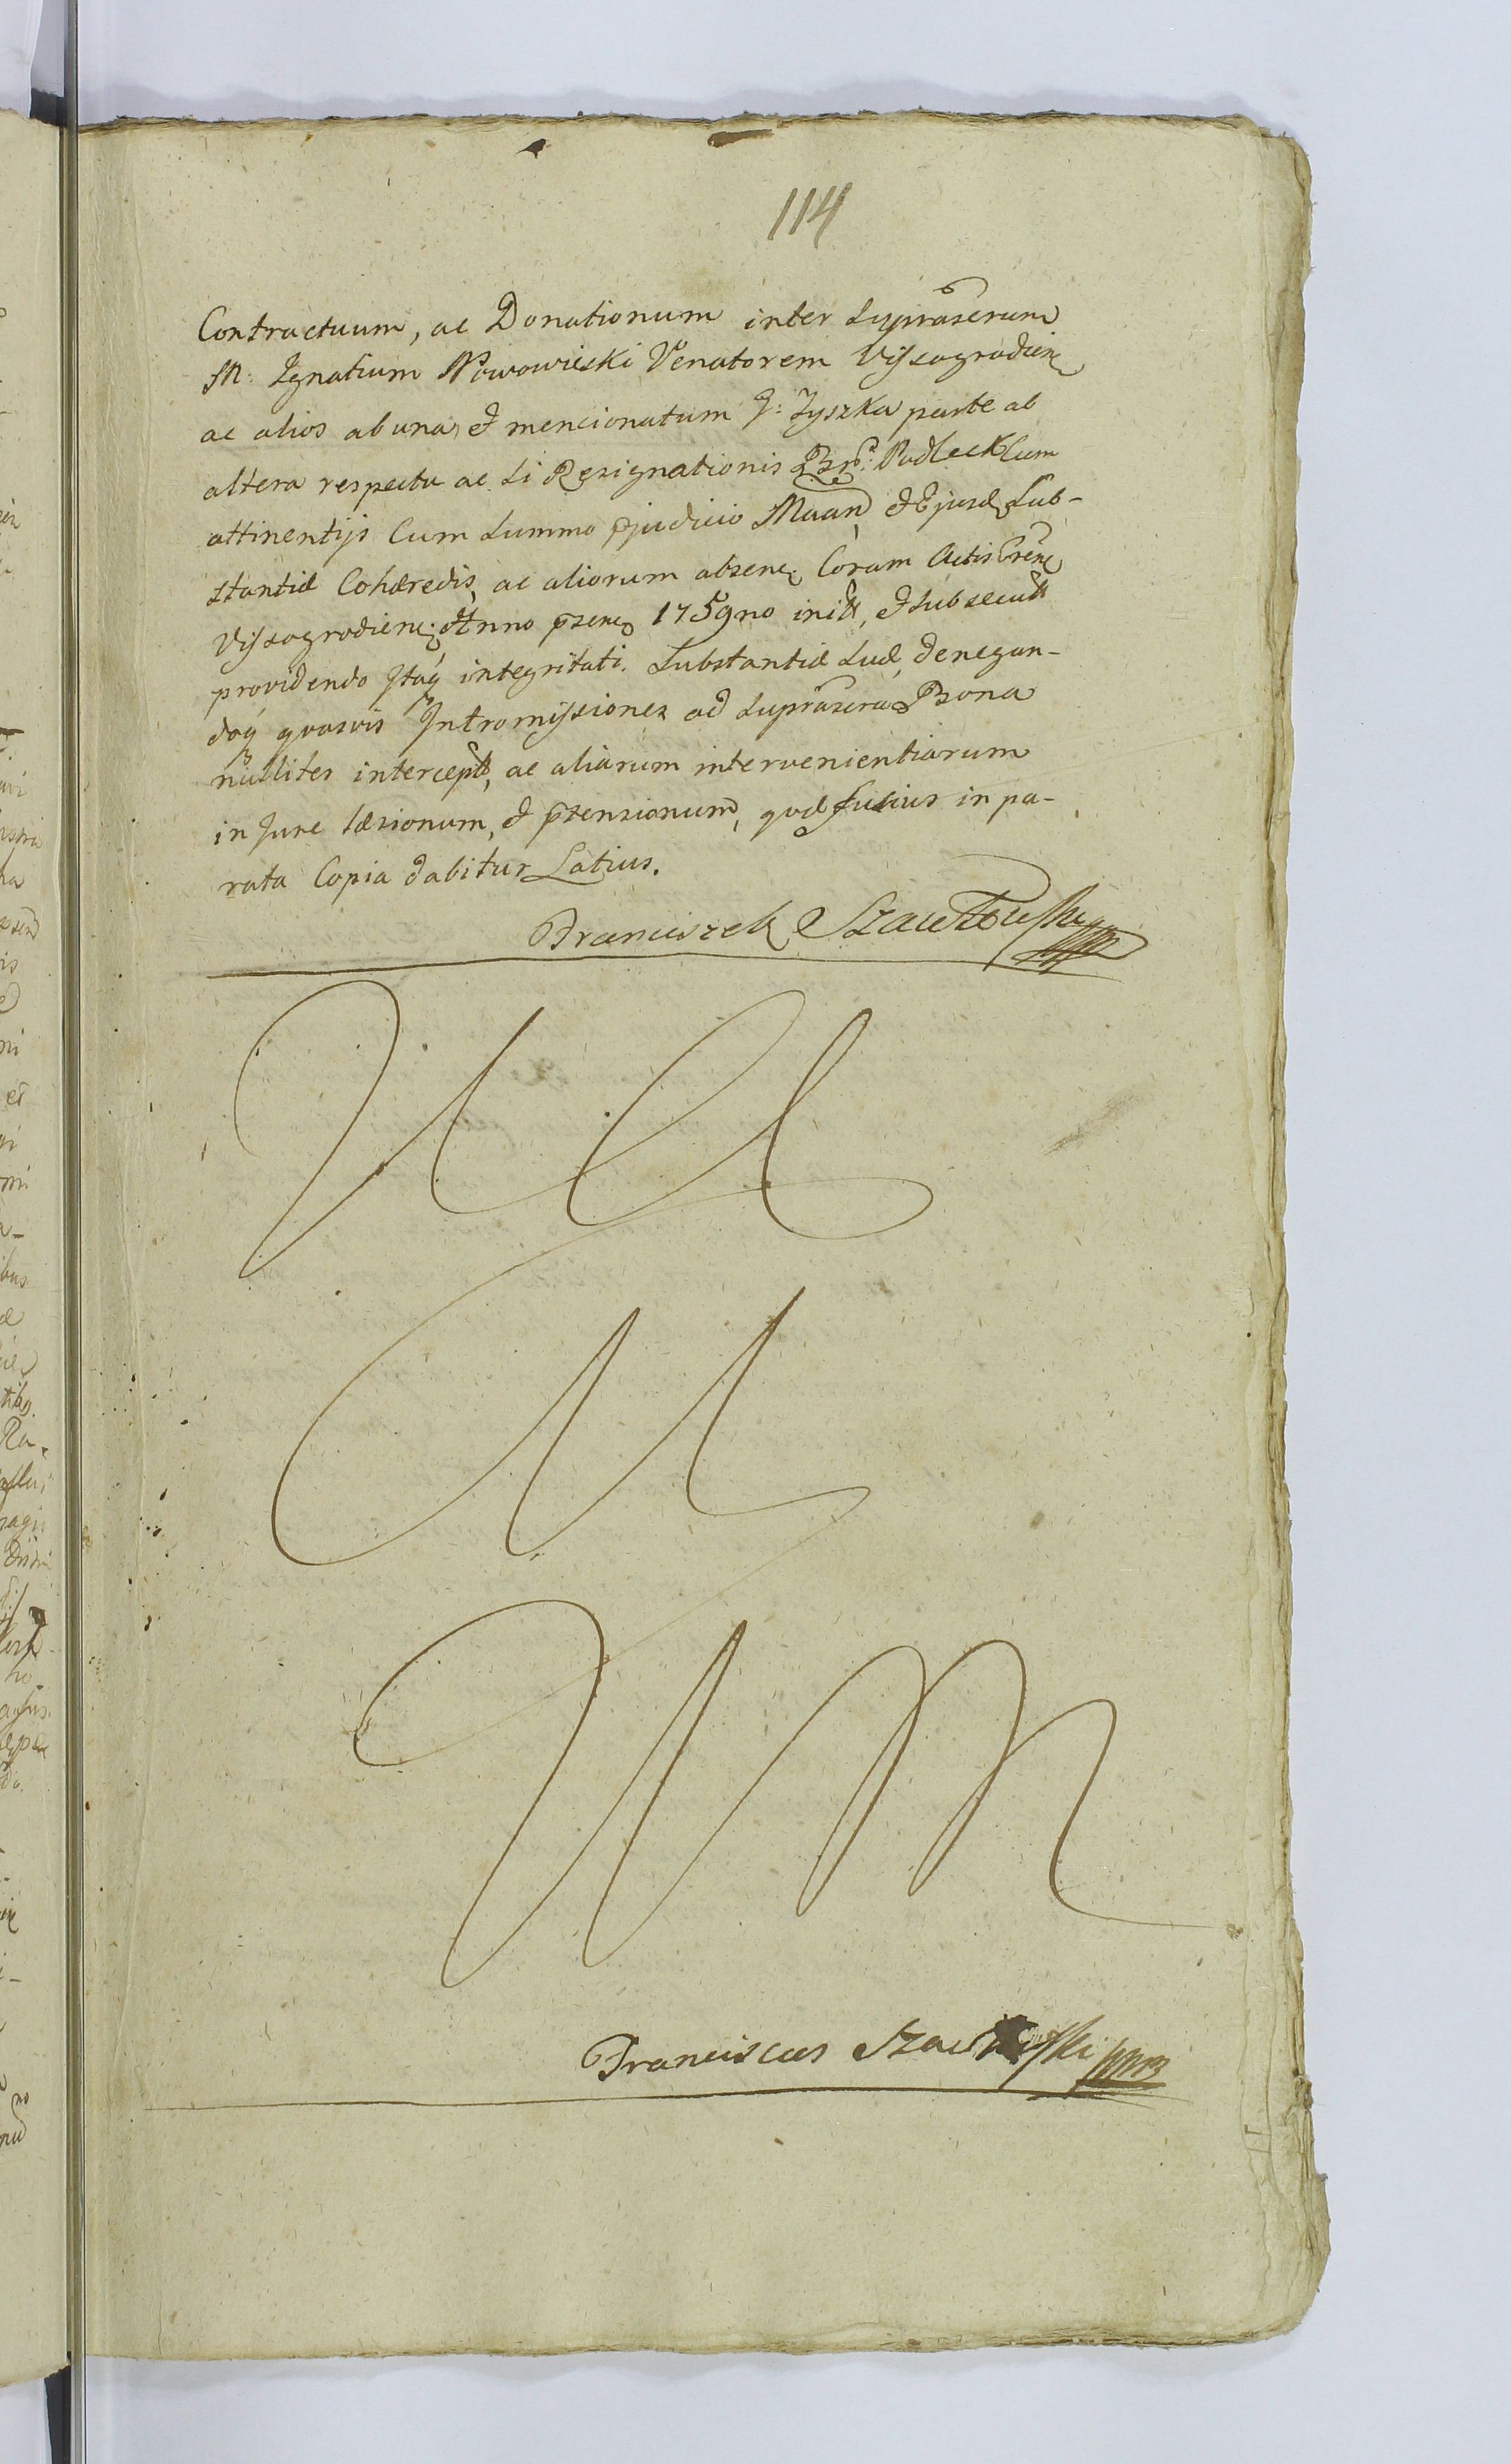 114
Contractuum, ac Donationum inter Supraserum
M: Ignatium Nowowieski Venatorem Vissogradien
ac alios ab una, et mencionatum G: Zyszka parte ab
altera respectu ac si Resignationis Bnr: Podleck Cum
attinentijs Cum summo pjudicio Maan et Ejusd Sub-
stantiæ Cohæredis, ac aliorum absen: Coram Actis
Vissogrodien: Anno pzen 1759no init, et subsecut
providendo Itaq integritati Substantiæ suæ, denegan-
doq quasvis Intromissiones ad Suprasera Bona
nulliter intercept, ac aliarum intervenientiarum
in Jure læsionum, et ptensionum, quæ fusius in pa-
rata Copia dabitur Latius.
Franciszek
Franciscus